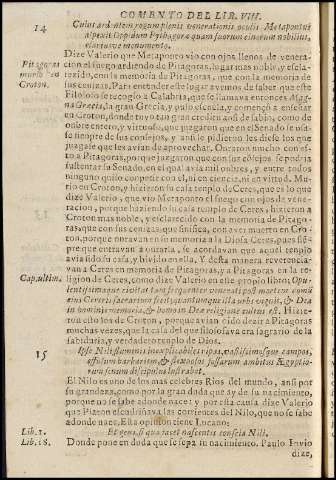 COMENTO DEL LIB. VIII.
14
Cuius ardentem rogum plenis venerationis oculis Metapontus
aspexit Oppidum Pythagoræ quam suorum cinerum nobilius,
clariusve monumento.
Dize Valerio que Metaponto vio con ojos llenos de venera-
Pitagoras
cion el fuego ardiendo de Pitagoras, lugar mas noble, y escla-
murio en
recido, con la memoria de Pitagoras, que con la memoria de
Croton.
sus cenizas. Para entender este lugar avemos de saber que este
Filosofo se recogio a Calabria, que se llamava entonces Mag-
na Grecia, la gran Grecia, y puso escuela, y començò a enseñar
en Croton, donde tuvo tan gran credito assi de sabio, como de
hombre entero, y virtuoso, que juzgaron que en el Senado
siempre de sus consejos, y aun le pidieron les diesse los que
juzgasse que les avian de aprovechar. Honraron mucho
a Pitagoras, porque juzgaron que con sus consejos se podria
sustentar su Senado, en el qual avia mil hombres, y entre todos
ninguno quiso competir con el en ciencia, ni en virtud. Mu-
rio en Croton, y hizieron su casa templo de Ceres, que es lo que
dize Valerio, que vio Metaponto el fuego con ojos de vene-
racion, porque haziendo la casa templo de Ceres, hizieron a
Croton mas noble, y esclarecido con la memoria de Pitago-
ras, que con sus cenizas, que sinifica, con aver muerto en Cro-
ton, porque entravan en su memoria a la Diosa Ceres, pues siẽ-
pre que entravan a orarla, se acordavan que aquel templo
avia sido su casa, y vivido en ella. Y desta manera reverencia-
van a Ceres en memoria de Pitagoras, y a Pitagoras en la re-
Cap. ultim.
ligion de Ceres, como dize Valerio en este propio libro, Opu-
lentissimaque civitas tam frequenter venerati post mortem domũ
eius Cereris sacrarium fecit, quantumque illa urbs viguit, & Dea
in hominis memoria, & homo in Deæ religione cultus est. Hizie-
ron esto los de Croton, porque avian oido dezir a Pitagoras
muchas vezes, que la casa del que filosofava era sagrario de la
sabiduria, y verdadero templo de Dios.
15
Ipse Nili fluminis inexplicabiles ripas, vastissimosque campos,
effusam barbariem, & flexuosos fossarum ambitus Ægyptio-
rum senum discipulus lustrabat.
El Nilo es uno de los mas celebres Rios del mundo, assi por
su grandeza, como por la gran duda que ay de su nacimiento,
porque no se sabe adonde nace: y por esta causa dize Valerio
que Platon escudriñava las corrientes del Nilo, que no se sabe
adonde nace. Esta opinion tiene Lucano:
Lib. 1.
Et gens si qua iacet nascenti conscia Nili.
Lib. 18.
Donde pone en duda que se sepa su nacimiento. Paulo Iovio
dize,